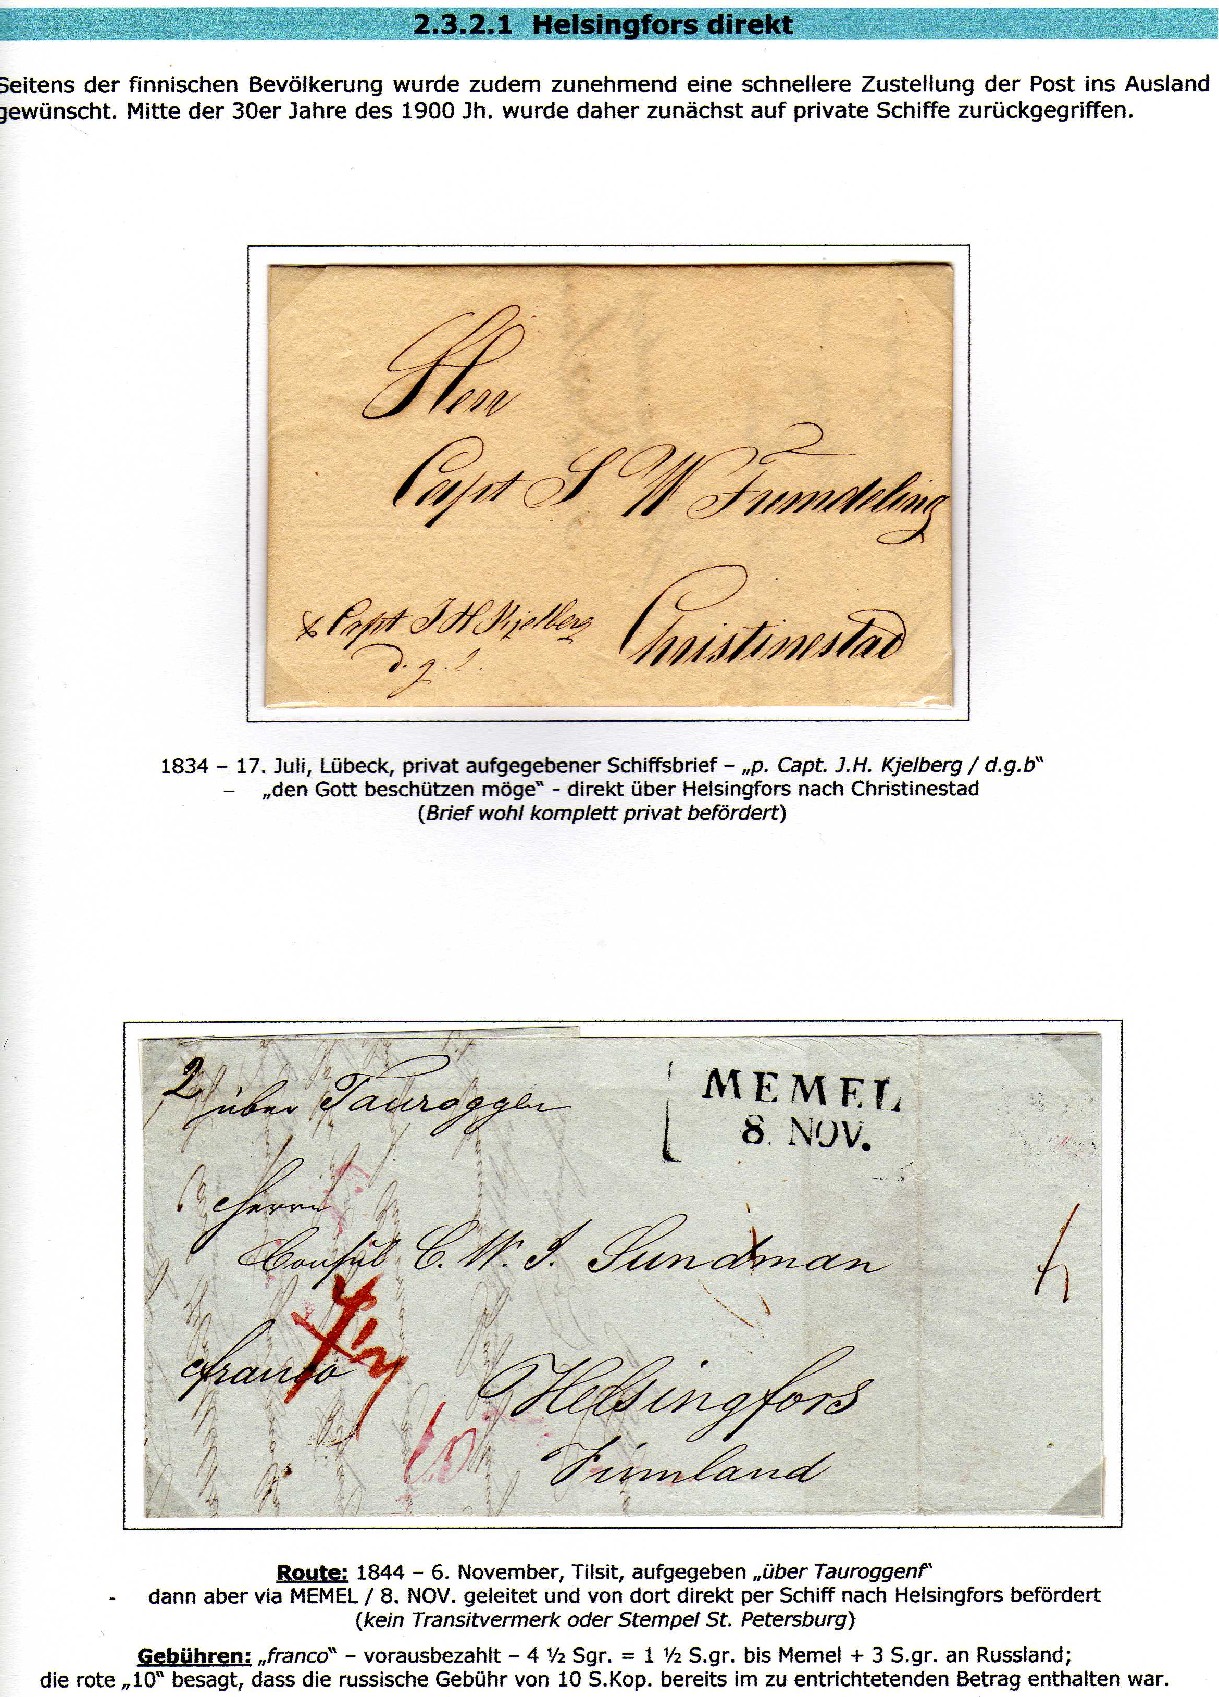 2.3.2.1 Helsingfors direkt
Seitens der finnischen Bevölkerung wurde zudem zunehmend eine schnellere Zustellung der Post ins Ausland
gewünscht. Mitte der 30er Jahre des 1900 Jh. wurde daher zunächst auf private Schiffe zurückgegriffen.
Herr
Capt S W
Christinestad
Capt J H Kjelberg
d. g. b.
1834 – 17. Juli, Lübeck, privat aufgegebener Schiffsbrief – „p. Capt. J.H. Kjelberg / d.g.b“
– „den Gott beschützen möge“ - direkt über Helsingfors nach Christinestad
(Brief wohl komplett privat befördert)
über Tauroggen
MEMEL
8. NOV.
Herrn
Consul C. W. I. Sundman
4 1/2
franco
Helsingfors
10
Finnland
Route: 1844 – 6. November, Tilsit, aufgegeben „über Tauroggenf“
- dann aber via MEMEL / 8. NOV. geleitet und von dort direkt per Schiff nach Helsingfors befördert
(kein Transitvermerk oder Stempel St. Petersburg)
Gebühren: „franco“ – vorausbezahlt – 4 ½ Sgr. = 1 ½ S.gr. bis Memel + 3 S.gr. an Russland;
die rote „10“ besagt, dass die russische Gebühr von 10 S.Kop. bereits im zu entrichtetenden Betrag enthalten war.